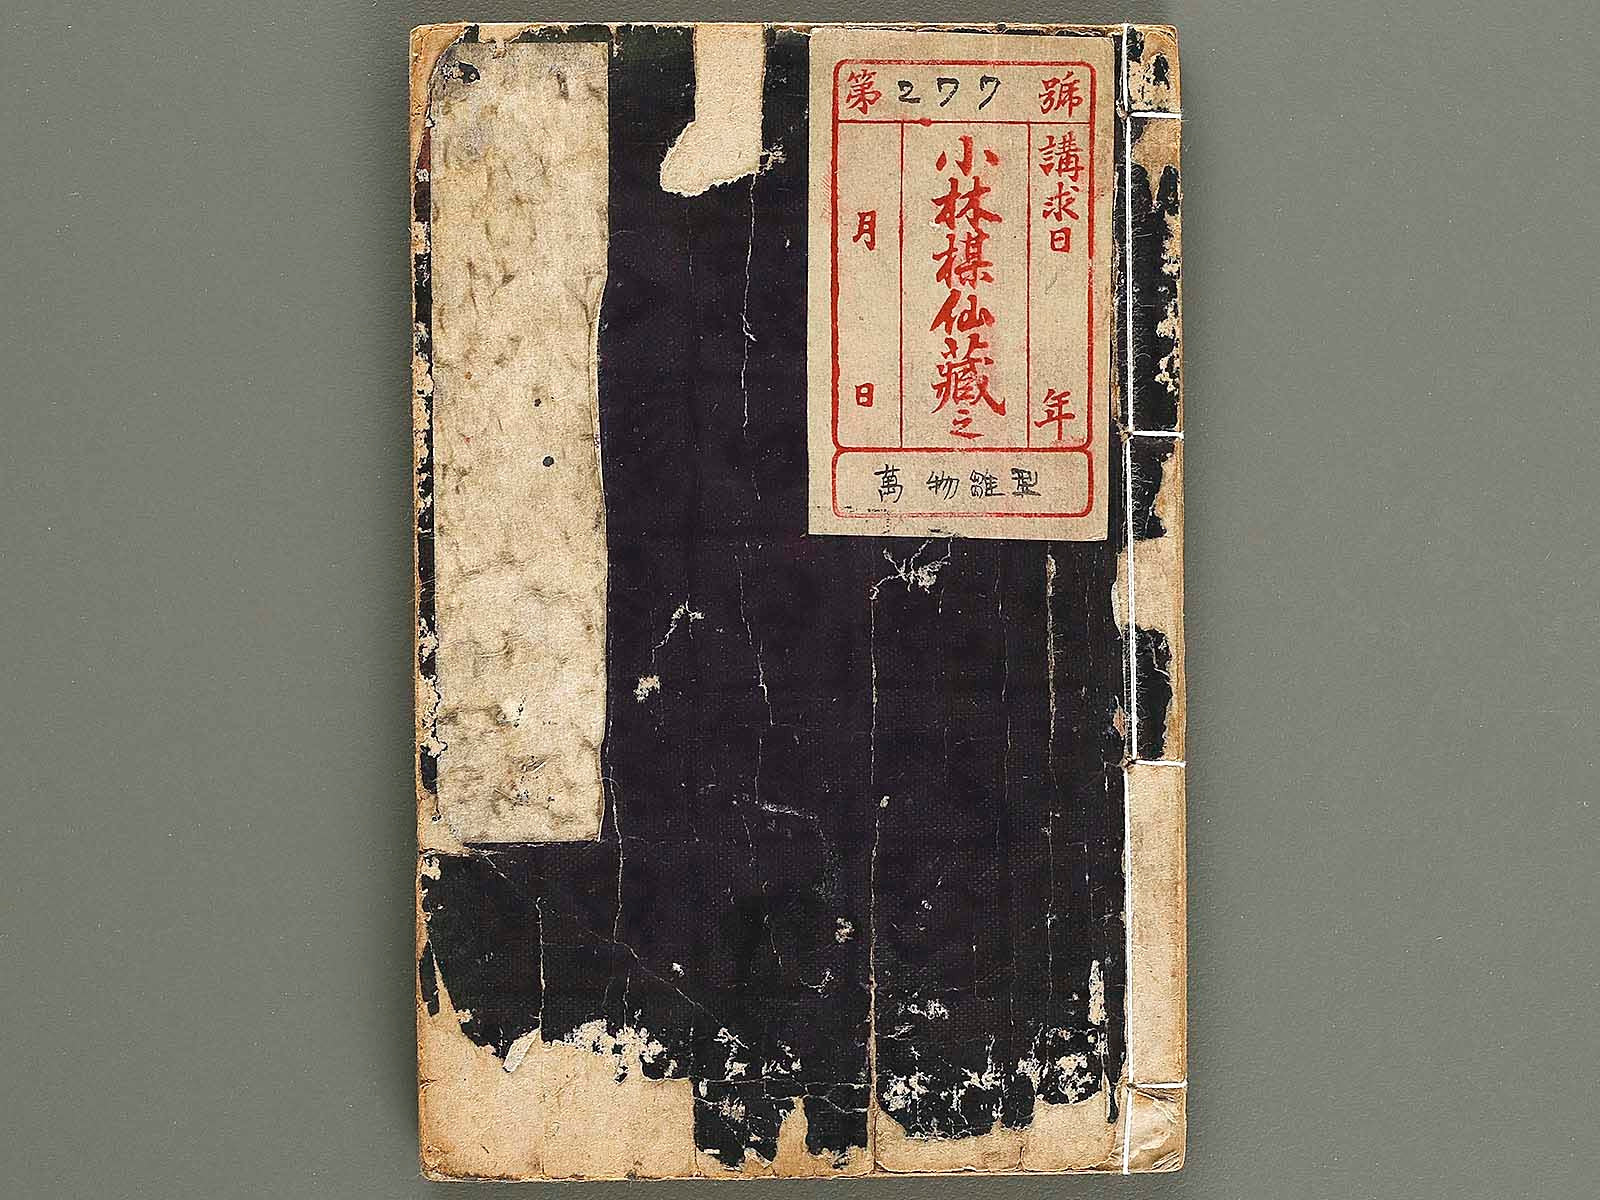 第277號
講求日 年
小林楳仙藏之
月 日
萬物雛型